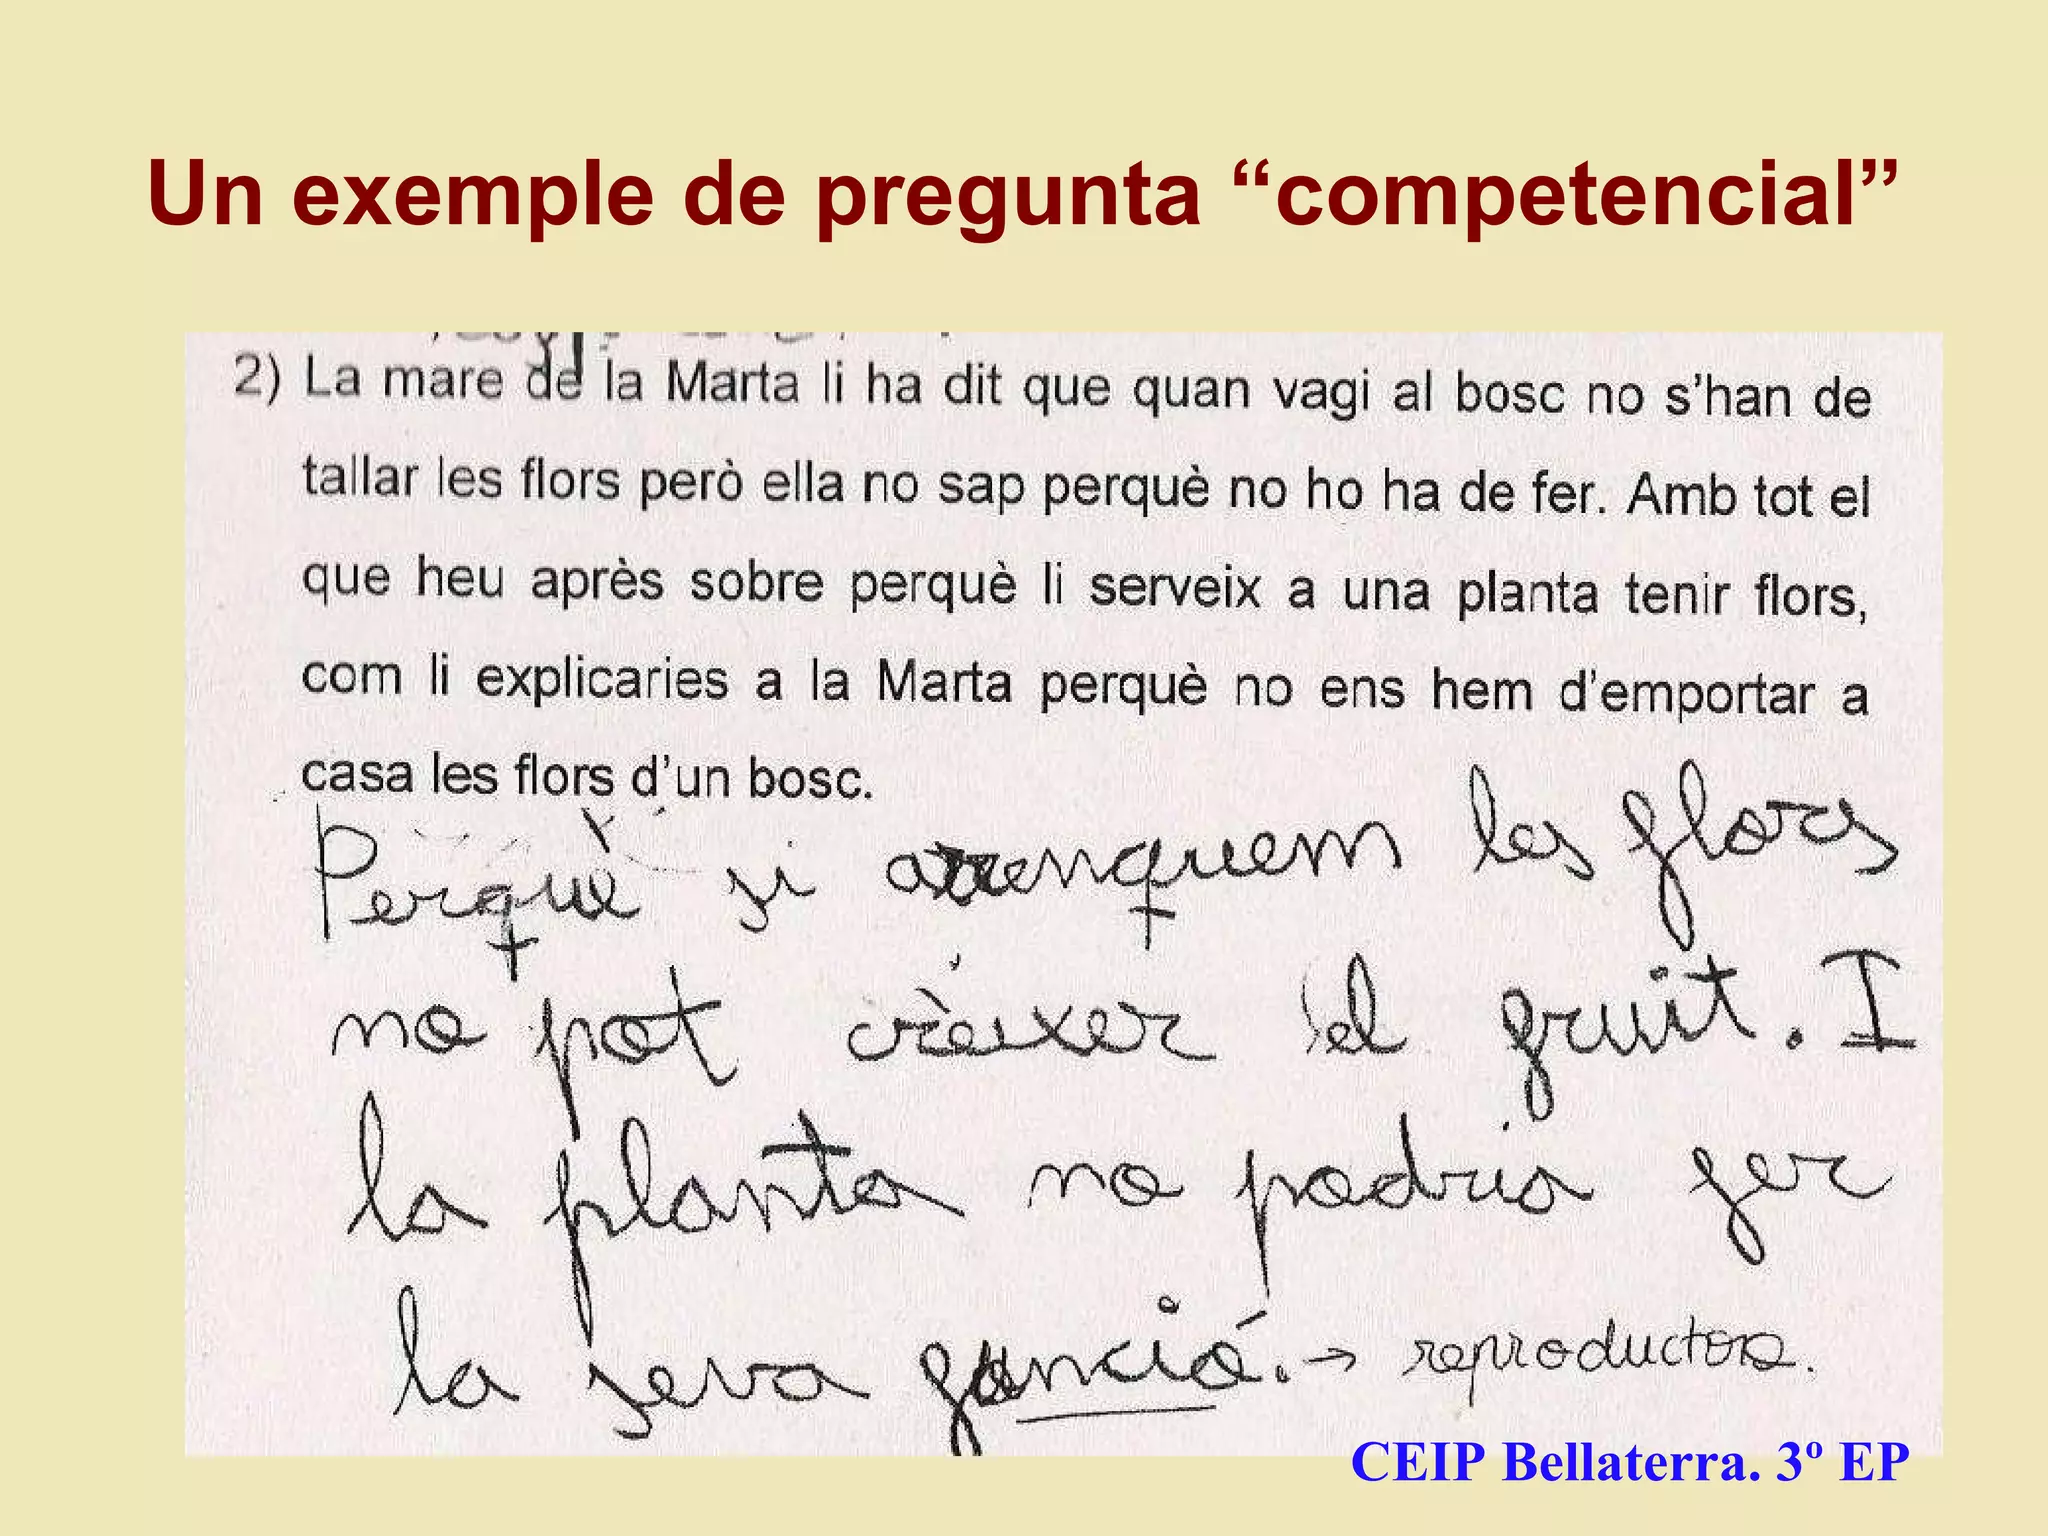 Un exemple de pregunta “competencial”
2) La mare de la Marta li ha dit que quan vagi al bosc no s’han de
tallar les flors però ella no sap perquè no ho ha de fer. Amb tot el
que heu après sobre perquè li serveix a una planta tenir flors,
com li explicaries a la Marta perquè no ens hem d’emportar a
casa les flors d’un bosc.
Perquè si arrenquem les flors
no pot crèixer el fruit. I
la planta no podria fer
la seva funció. → reproductora.
CEIP Bellaterra. 3º EP